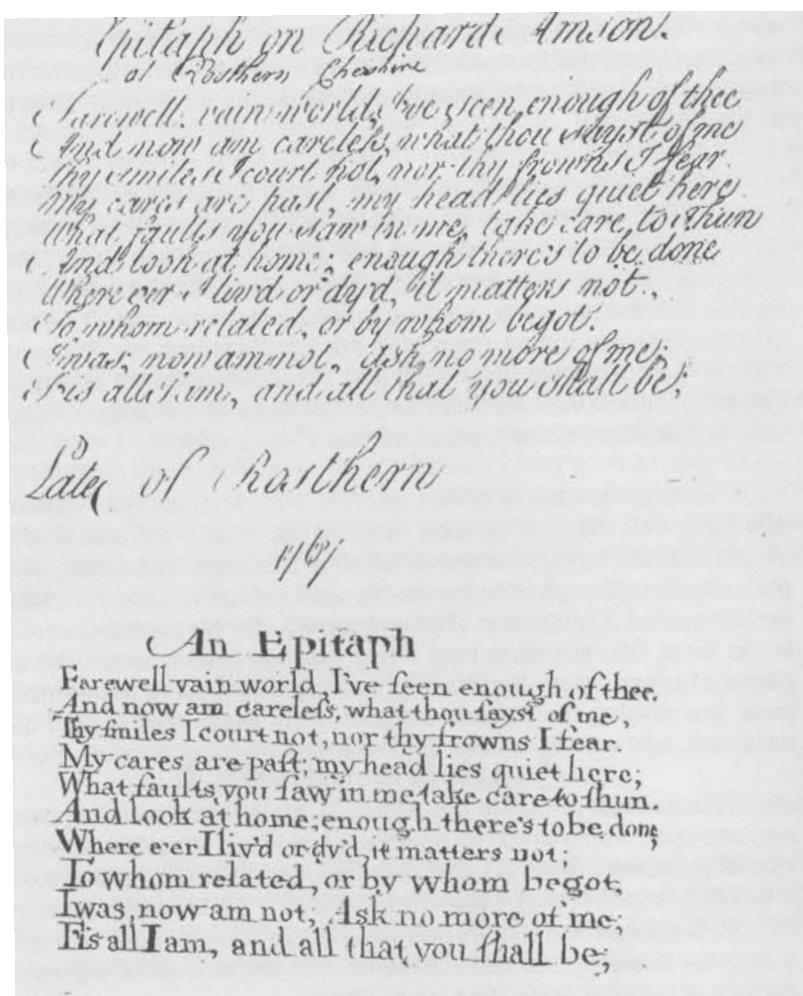 Epitaph on Richard Amson.
at Rosthern Cheshire
Farewell vain world, I've seen enough of thee
And now am careless, what thou sayst of me
Thy smiles I court not, nor thy frowns I fear.
My cares are past, my head lies quiet here.
What faults you saw in me, take care to shun
And look at home; enough there's to be done
Where eer I liv'd or dy'd, it matters not.
To whom related, or by whom begot.
I was, now am not, Ask no more of me;
Tis all I am, and all that you shall be;
Late of Rosthern
An Epitaph
Farewell vain world, I've ſeen enough of thee,
And now am careleſs, what thou ſayst of me,
Thy ſmiles I court not, nor thy frowns I fear.
My cares are paſt; my head lies quiet here;
What faults you ſaw in me take care to ſhun.
And look at home; enough there's to be done,
Where e'er I liv'd or dy'd, it matters not;
To whom related, or by whom begot;
I was, now am not, Ask no more of me;
Tis all I am, and all that you ſhall be;